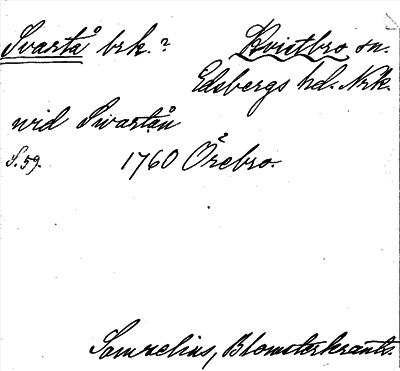 Svartå brk.? Kvistbro sn.
Edsbergs hd. Nrk.
wid Swartån
S. 59. 1760 Örebro.
Samzelius, Blomsterkrants.